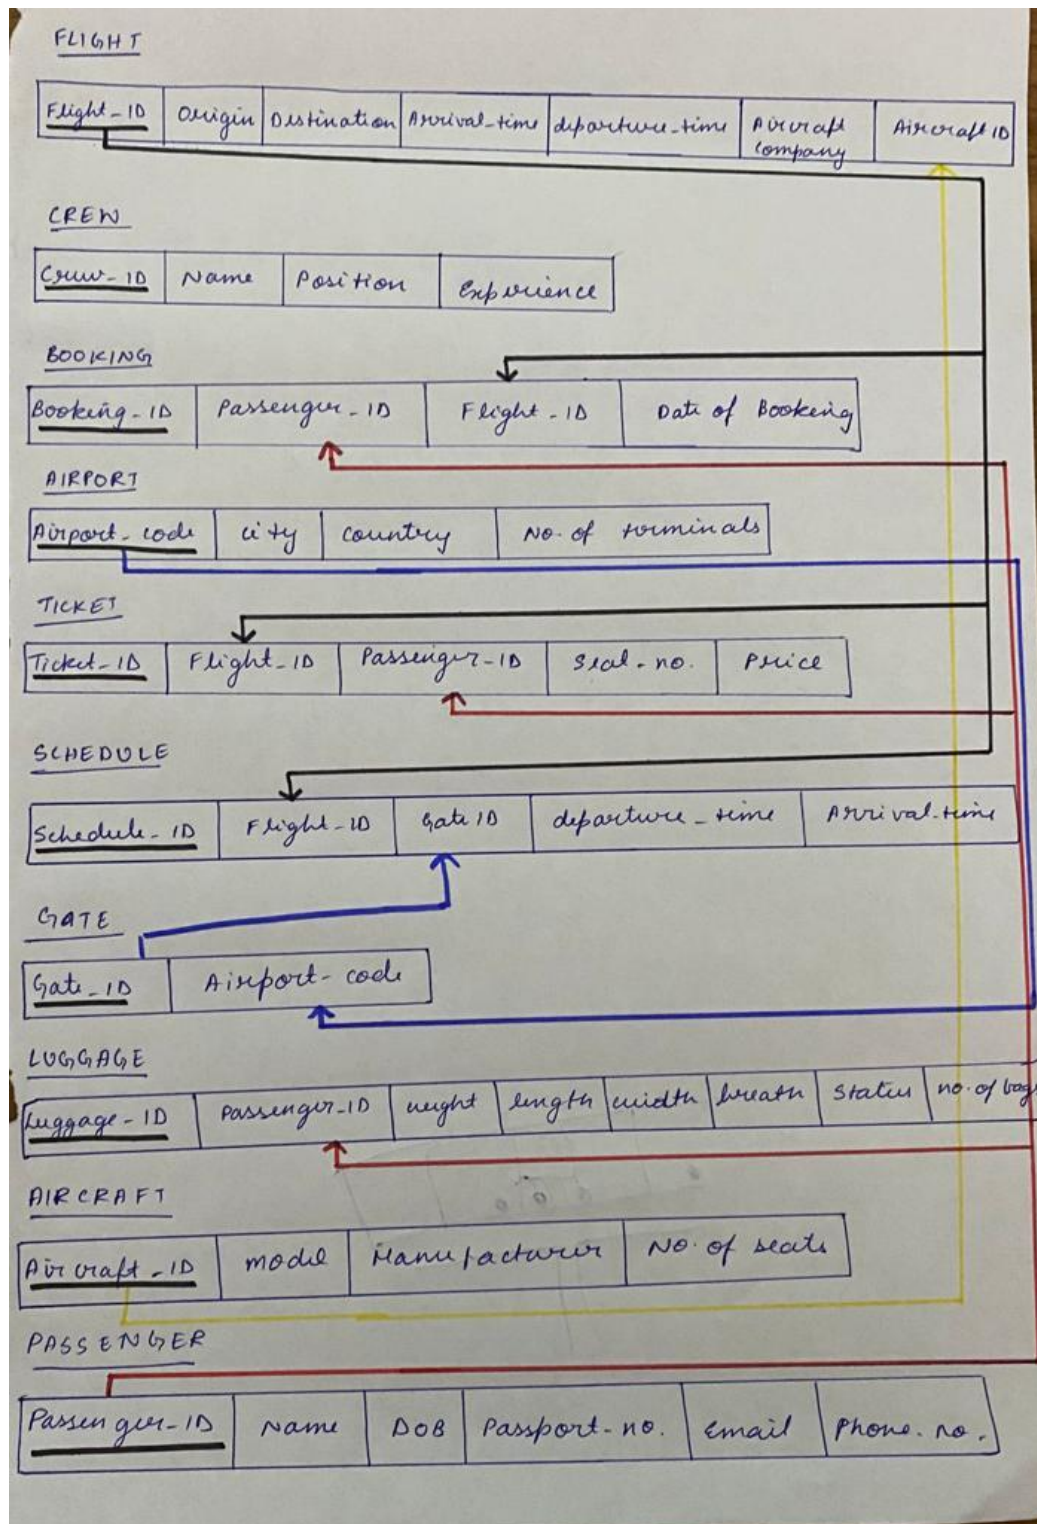 FLIGHT
Flight_ID Origin Destination Arrival_time departure_time Aircraft Company Aircraft ID
CREW
Crew_ID Name Position Experience
BOOKING
Booking_ID Passenger_ID Flight_ID Date of Booking
AIRPORT
Airport_code city country No. of terminals
TICKET
Ticket_ID Flight_ID Passenger_ID Seat_no. Price
SCHEDULE
Schedule_ID Flight_ID Gate ID departure_time Arrival_time
GATE
Gate_ID Airport_code
LUGGAGE
Luggage_ID Passenger_ID weight length width breath Status no. of bags
AIRCRAFT
Aircraft_ID model Manufacturer No. of seats
PASSENGER
Passenger_ID Name DOB Passport_no. Email Phone_no.